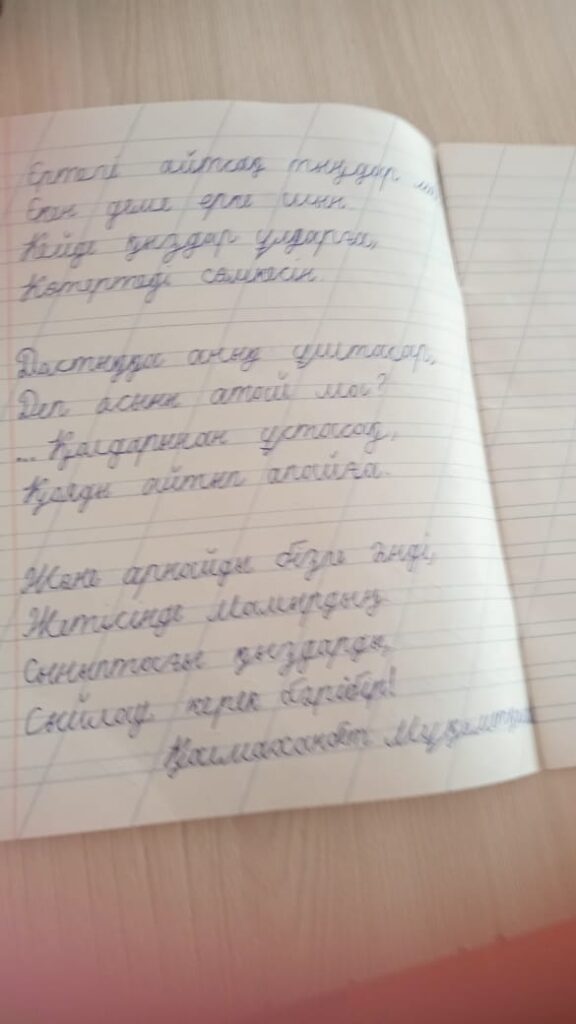 Ертегі айтсаң тыңдар
Екен деме ерке шын.
Кейде қыздар ұлдарға,
Көтертеді сөмкесін.
Достыққа анық ұштасар,
Деп осыны атой ма?
... Қолдарынан ұстасаң,
Қояды айтып апайға.
Және арнайды бізге әнді,
Жетісінде Мамырдың
Сыныптағы қыздарды,
Сыйлау керек бәрібір!